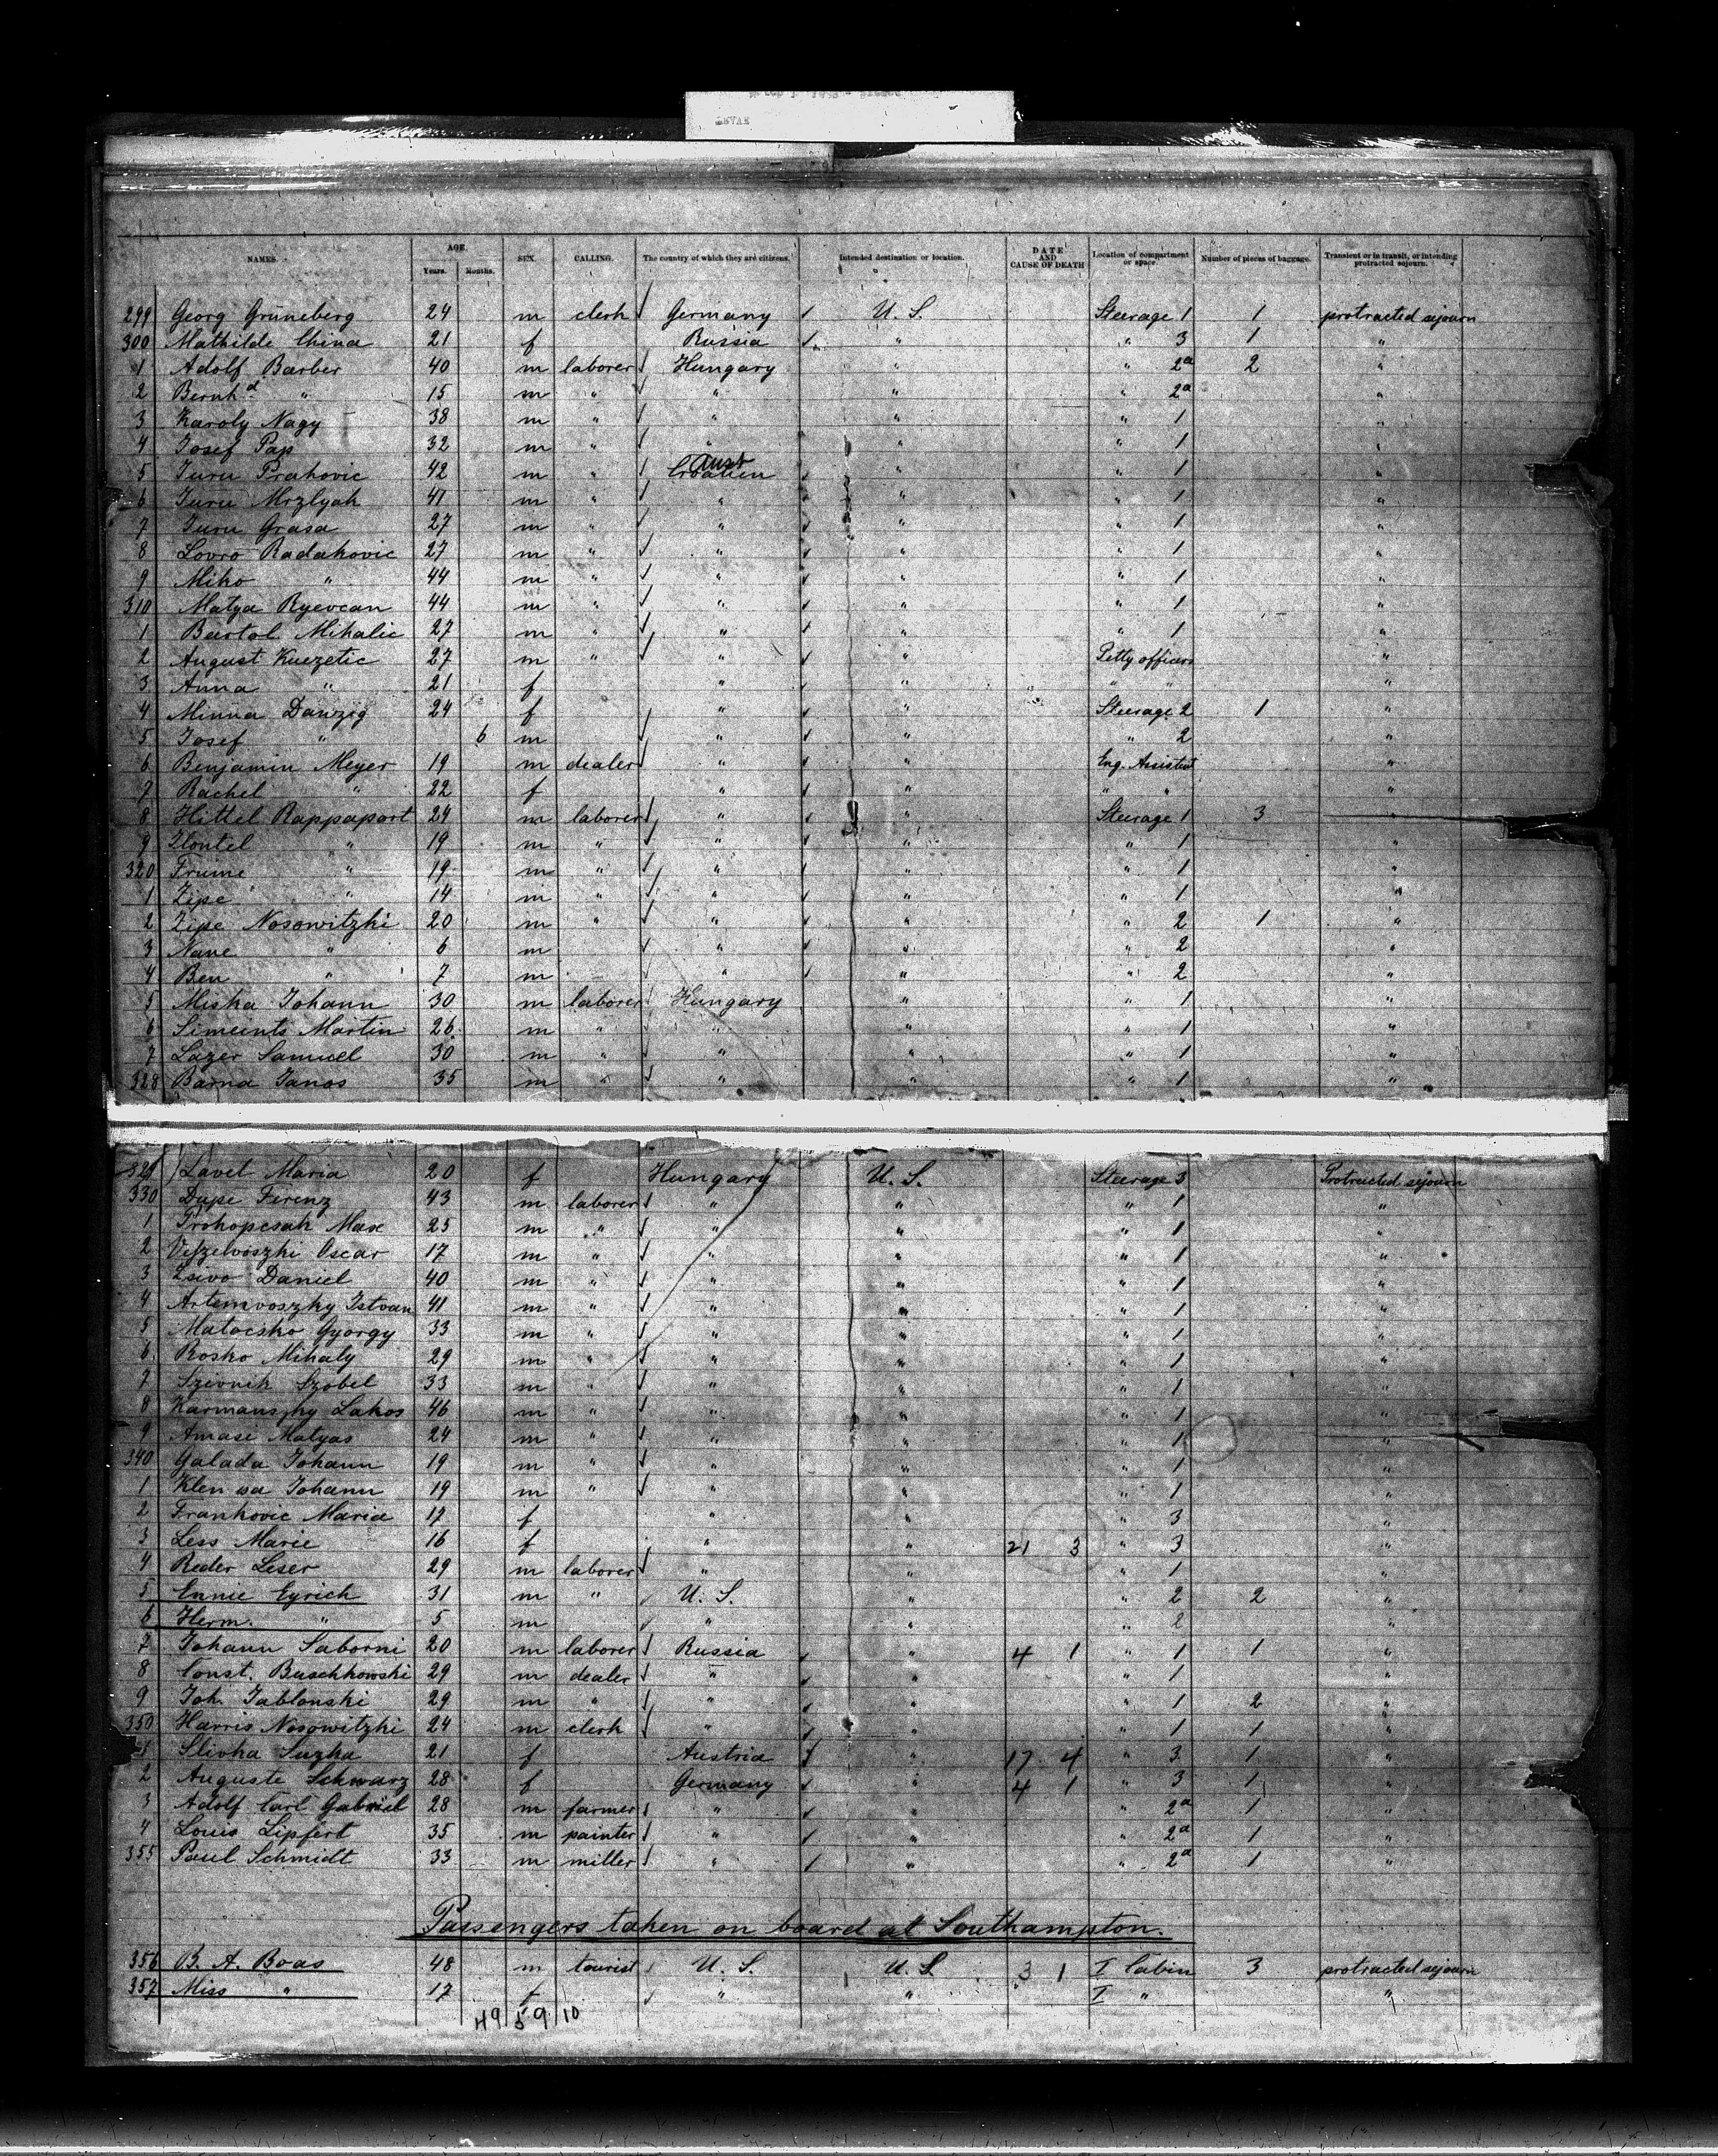 NAMES. AGE. Years. Months. SEX. CALLING. The country of which they are citizens. Intended destination or location. DATE AND CAUSE OF DEATH Location of compartment or space. Number of pieces of baggage. Transient or in transit, or intending protracted sejourn.
299 Georg Grüneberg 24 m clerk Germany U. S. Steerage 1 1 protracted sejourn
300 Mathilde China 21 f Russia " " 3 1 "
1 Adolf Barber 40 m laborer Hungary " " 2a 2 "
2 Bernhd " 15 m " " " " 2a "
3 Karoly Nagy 38 m " " " " 1 "
4 Josef Pap 32 m " " " " 1 "
5 Juru Prahovic 42 m " Croatien Aust " " 1 "
6 Juru Mrzlyak 41 m " " " " 1 "
7 Juru Grasa 27 m " " " " 1 "
8 Lovro Radakovic 27 m " " " " 1 "
9 Miko " 44 m " " " " 1 "
310 Matya Ryevcan 44 m " " " " 1 "
1 Bartol Mihalic 27 m " " " " 1 "
2 August Kuezetic 27 m " " " Petty officers "
3 Anna " 21 f " " " " "
4 Minna Danzig 24 f " " Steerage 2 1 "
5 Josef " 6 m " " " 2 "
6 Benjamin Meyer 19 m dealer " " Eng. Assistent "
7 Rachel " 22 f " " " " "
8 Hittel Rappaport 24 m laborer " " Steerage 1 3 "
9 Zlontel " 19 m " " " " 1 "
320 Frume " 19 m " " " " 1 "
1 Zipe " 14 m " " " " 1 "
2 Zipe Nosowitzki 20 m " " " " 2 1 "
3 Nane " 6 m " " " 2 "
4 Ben " 7 m " " " 2 "
5 Miska Johann 30 m laborer Hungary " " 1 "
6 Simeints Martin 26 m " " " " 1 "
7 Lazer Samuel 30 m " " " " 1 "
328 Barna Janos 35 m " " " " 1 "
329 Lavet Maria 20 f Hungary U. S. Steerage 3 Protracted sejourn
330 Dupe Ferenz 43 m laborer " " " 1 "
1 Prokopcsak Max 25 m " " " " 1 "
2 Veszelvoszki Oscar 17 m " " " " 1 "
3 Zsivo Daniel 40 m " " " " 1 "
4 Artemvoszky Istvan 41 m " " " " 1 "
5 Matocsko György 33 m " " " " 1 "
6 Rosko Mihaly 29 m " " " " 1 "
7 Szivnik Szobel 33 m " " " " 1 "
8 Karmanszky Lakos 46 m " " " " 1 "
9 Amase Matyas 24 m " " " " 1 "
340 Galada Johann 19 m " " " " 1 "
1 Klen sa Johann 19 m " " " " 1 "
2 Frankovic Maria 17 f " " " 3 "
3 Less Marie 16 f " " 21 3 " 3 "
4 Reder Leser 29 m laborer " " " 1 "
5 Ennie Eyrich 31 m " U. S. " " 2 2 "
6 Herm. " 5 m " " " 2 "
7 Johann Saborni 20 m laborer Russia " 4 1 " 1 1 "
8 Const. Buschkowski 29 m dealer " " " 1 "
9 Joh. Jablonski 29 m " " " " 1 2 "
350 Harris Nosowitzki 24 m clerk " " " 1 1 "
1 Slivka Suzka 21 f Austria " 17 4 " 3 1 "
2 Auguste Schwarz 28 f Germany " 4 1 " 3 1 "
3 Adolf Carl Gabriel 28 m farmer " " " 2a 1 "
4 Louis Lipfert 35 m painter " " " 2a 1 "
355 Paul Schmidt 33 m miller " " " 2a 1 "
Passengers taken on board at Southampton.
356 B. A. Boas 48 m tourist U. S. U. S. 3 1 I Cabin 3 protracted sejourn
357 Miss " 17 f " " I " "
49 59 10